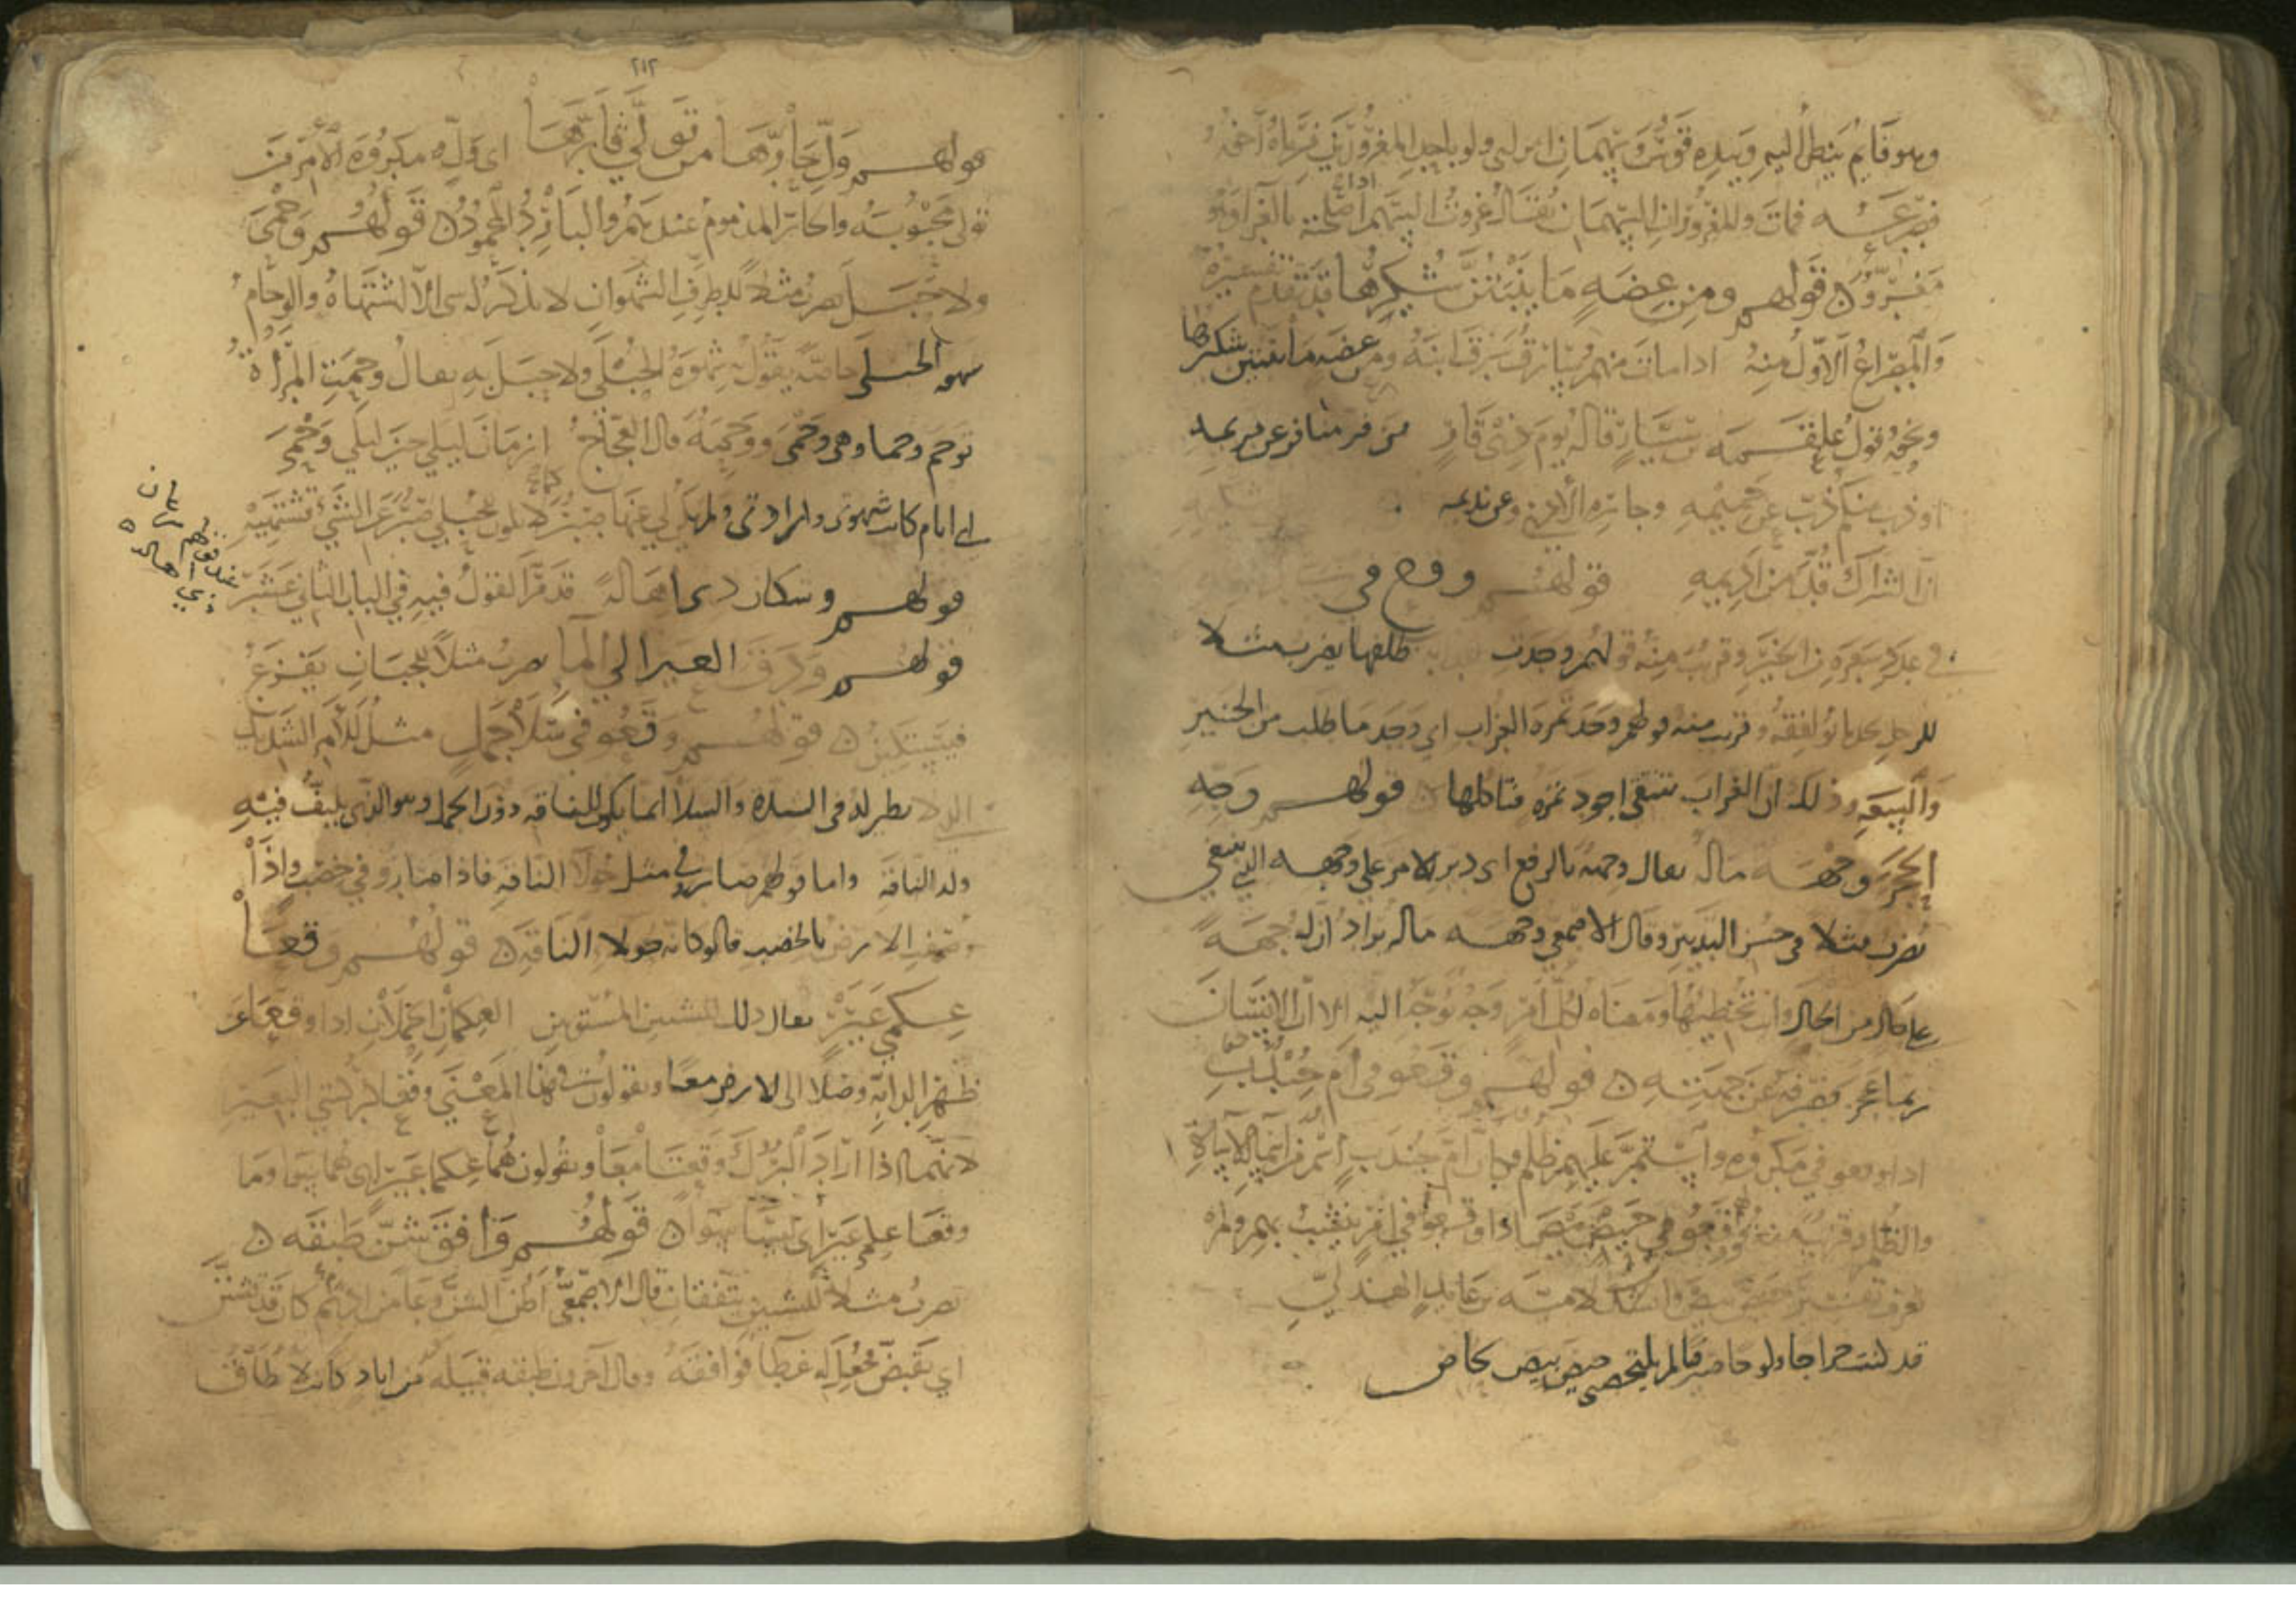 وهو قايم ينظر اليه وبيده قوس وسهمان فقال ولو باحد المغروين فرماه اخوه
فصرعه فمات والمغروان السهمان يقال غروت السهم اذا اصلحته بالغرا وهو
مغرو ن قولهم ومن عضة ما ينبتن شكيرها قد تقدم تفسيره
والمصراع الاول منه اذا مات منهم ميت سرق ابنه ومن عضة ما ينبتن شكيرها
ونحوه قول علقمة بن سيار قاله يوم ذي قار من فر منكم فر عن حريمه
او ذب منكم ذب عن حميمه وجاره الادنى وعن نديمه
ان الشراك قد من اديمه قولهم
وقريب منه قولهم وجدت الدابة ظلفها يضرب مثلا
للرجل يجد ما يوافقه وقريب منه قولهم وجد تمرة الغراب اي وجد ما طلب من الخير
والسعة وذلك ان الغراب ينتقي اجود تمرة فياكلها ن قولهم وجه
الحجر وجهة ماله يقال وجهة بالرفع اي دبر الامر على وجهه الذي ينبغي
يضرب مثلا في حسن التدبير وقال الاصمعي وجهة ماله يراد ان له جهة
على كل من الحال وان تخطيتها ومعناه لكل امر وجه يوجه اليه الا ان الانسان
ربما عجز فصرفه عن جهته ن قولهم وقعوا في ام جندب
اذا وقعوا في مكروه واستمر عليهم ظلم وكان ام جندب اسم من اسماء الاساءة
والظلم وقريب منه قولهم وقعوا في حيص بيص اذا وقعوا في امر ينشب بهم ولم
يعرف تفسير حيص بيص وانشد لامية بن عايذ الهذلي
قد كنت خراجا ولوجا صيرفا لم تلتحصني حيص بيص لحاص
٢١٢
قولهم ول حارها من تولى قارها اي ول مكروه الامر من
تولى محبوبه والحار المذموم عندهم والبارد المحمود ن قولهم وحمى
ولا حبل يضرب مثلا للطرف الشهوان لا يذكر له شي الا اشتهاه والوحام
شهوة الحبلى خاصة يقول به شهوة الحبلى ولا حبل به يقال وحمت المراة
توحم وحما وهي وحمى ووحمة قال العجاج ازمان ليلى حين ليلى وحمى
اي ايام كانت شهوتي وارادتي ولم يكن لي عنها صبر كما لا يكون للحبلى صبر عن الشي تشتهيه
قولهم وشكان ذي اهالة قد مر القول فيه في الباب الثاني عشر
عند قولهم سرعان ذي اهالة ن
قولهم ودق العير الى الما يضرب مثلا للجبان يفزع
فيستكين ن قولهم وقعوا في سلا جمل مثل للامر الشديد
الذي لا نظير له في الشدة والسلا انما يكون للناقة دون الجمل وهو الذي يلتف فيه
ولد الناقة واما قولهم صاروا في مثل حولا الناقة فاذا صاروا في خصب واذا
وصفت الارض بالخصب قالوا كانه حولا الناقة ن قولهم وقعا
عكمي عير يقال ذلك للشيين المستويين العكمان الحملان اذا وقعا عن
ظهر الدابة وصلا الى الارض معا ويقولون في هذا المعنى وقعا كركبتي البعير
لانهما اذا اراد البروك وقعتا معا ويقولون هما عكما عير اي هما سوا وما
وقعا عكمي عير اي ليسا سوا ن قولهم وافق شن طبقه ن
يضرب مثلا للشيين يتفقان قال الاصمعي اظن الشن وعا من ادم كان قد تشنن
اي تقبض فجعل له غطا فوافقه وقال اخرون طبقه قبيله من اياد كانت لا تطاق